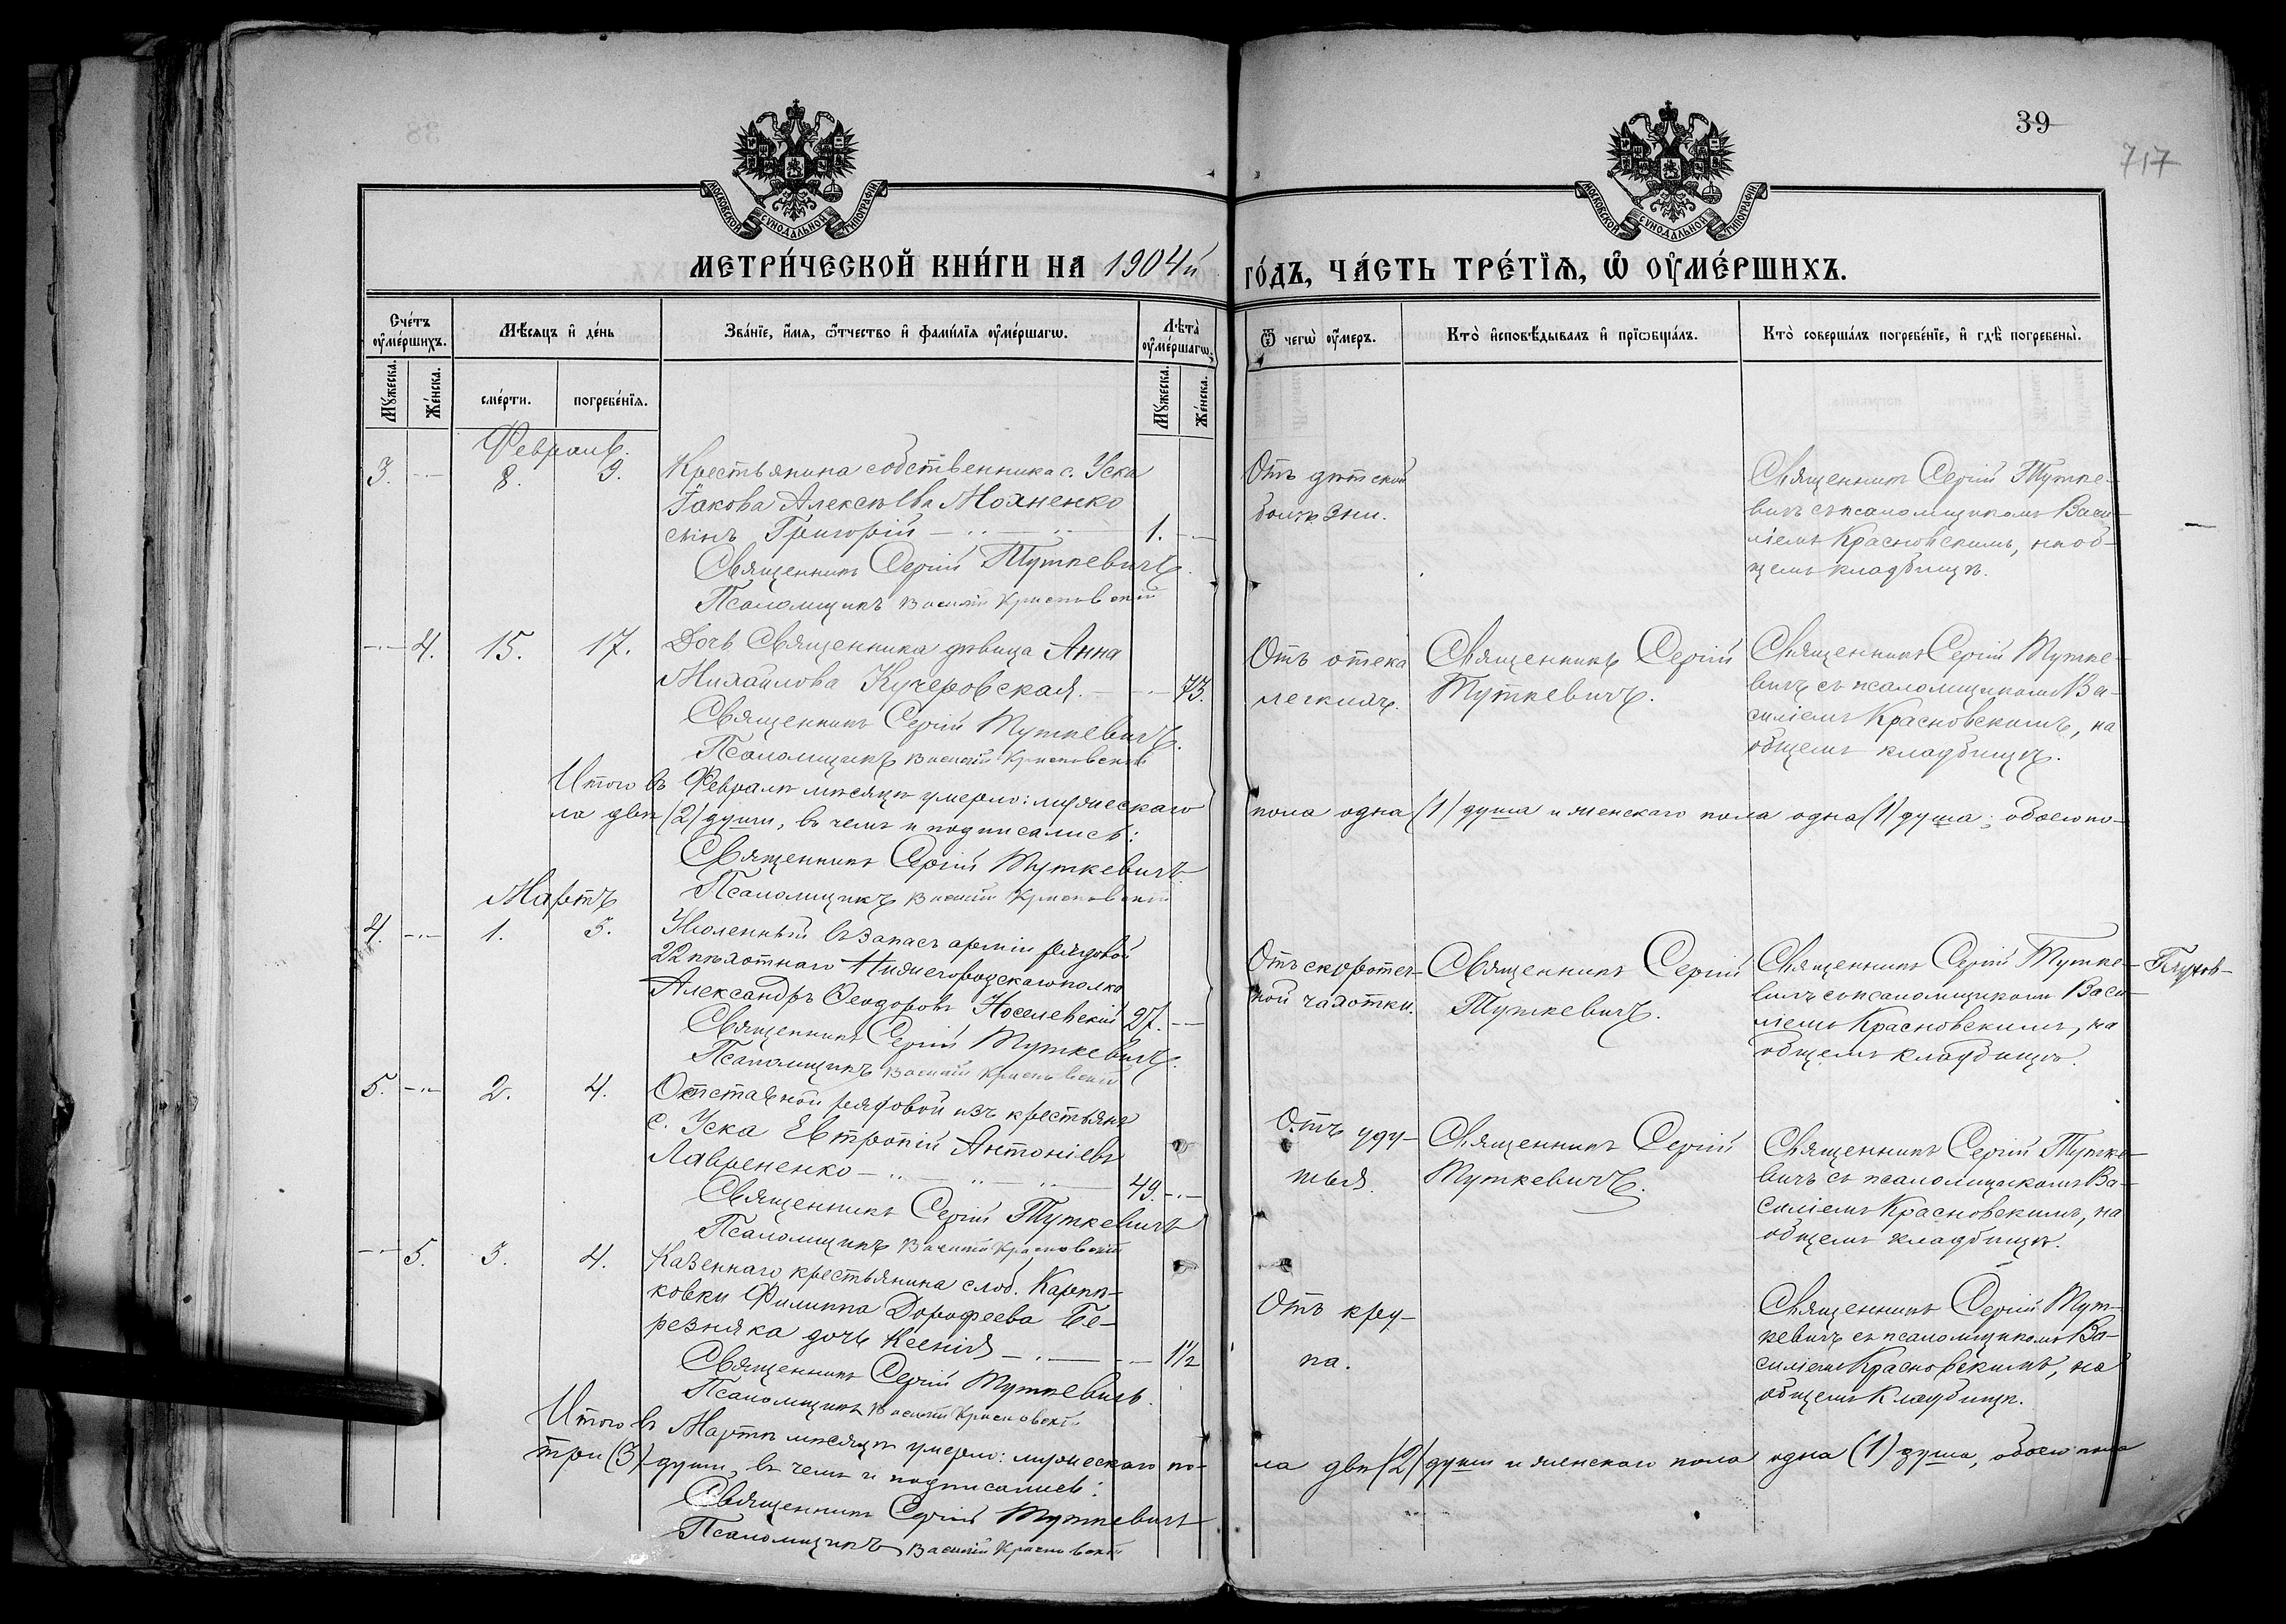 39
717
МОСКОВСКОЙ СѴНОДАЛЬНОЙ ТИПОГРАФІИ
МОСКОВСКОЙ СѴНОДАЛЬНОЙ ТИПОГРАФІИ
МЕТРИ́ЧЕСКОЙ КНИ́ГИ НА 1904й
ГО́ДЪ, ЧА́СТЬ ТРЕ́ТІѦ, Ѡ ОУМЕ́РШИХЪ.
Сче́тъ оумє́ршихъ.
Мѣ́сяцъ и де́нь
Зва́ніе, и́мя, ѿтчество и фами́лія оуме́ршагѡ.
Лѣта̀ оуме́ршагѡ.
Ѿ чегѡ̀ оу́меръ.
Кто̀ исповѣ́дывалъ и прїѡбща́лъ.
Кто̀ соверша́лъ погребе́ніе, и гдѣ̀ погребены̀.
Му́жеска.
Же́нска.
сме́рти.
погребе́нія.
Му́жеска.
Же́нска.
Февраль.
3. 8. 9. Крестьянина собственника с. Уска
Іакова Алексѣева Мохненко
сынъ Григорій 1.
Священникъ Сергій Туткевичъ.
Псаломщикъ Василій Красновскій
Отъ дѣтской
болѣзни.
Священникъ Сергій Тутке-
вичъ съ псаломщикомъ Васи-
ліемъ Красновскимъ, на об-
щемъ кладбищѣ.
4. 15. 17. Дочь Священника дѣвица Анна
Михайлова Кучеровская. 73.
Священникъ Сергій Туткевичъ.
Псаломщикъ Василій Красновскій
Отъ отека
легкихъ.
Священникъ Сергій
Туткевичъ.
Священникъ Сергій Тутке-
вичъ съ псаломщикомъ Ва-
силіемъ Красновскимъ, на
общемъ кладбищѣ.
Итого въ Февралѣ мѣсяцѣ умерло: мужескаго пола одна (1) душа и женскаго пола одна (1) душа; обоего по-
ла двѣ (2) души, въ чемъ и подписались:
Священникъ Сергій Туткевичъ.
Псаломщикъ Василій Красновскій
Мартъ
4. 1. 3. Уволенный въ запасъ арміи рядовой
22 пѣхотнаго Нижегородскаго полка
Александръ Ѳеодоровъ 27.
Священникъ Сергій Туткевичъ.
Псаломщикъ Василій Красновскій
Отъ скоротеч-
ной чахотки.
Священникъ Сергій
Туткевичъ.
Священникъ Сергій Тутке-
вичъ съ псаломщикомъ Васи-
ліемъ Красновскимъ, на
общемъ кладбищѣ.
5. 2. 4. Отставной рядовой изъ крестьянъ
с. Уска Евтропій Антоніевъ
Лаврененко 49.
Священникъ Сергій Туткевичъ
Псаломщикъ Василій Красновскій
Отъ уду-
шья.
Священникъ Сергій
Туткевичъ.
Священникъ Сергій Тутке-
вичъ съ псаломщикомъ Ва-
силіемъ Красновскимъ, на
общемъ кладбищѣ.
5. 3. 4. Казеннаго крестьянина слоб.
ковки Филиппа Дорофеева Бе-
резняка дочь Ксенія 1½
Священникъ Сергій Туткевичъ.
Псаломщикъ Василій Красновскій
Отъ кру-
па.
Священникъ Сергій Тут-
кевичъ съ псаломщикомъ Ва-
силіемъ Красновскимъ, на
общемъ кладбищѣ.
Итого въ Мартѣ мѣсяцѣ умерло: мужескаго по-ла двѣ (2) души и женскаго пола одна (1) душа, обоего пола
три (3) души, въ чемъ и подписались:
Священникъ Сергій Туткевичъ
Псаломщикъ Василій Красновскій